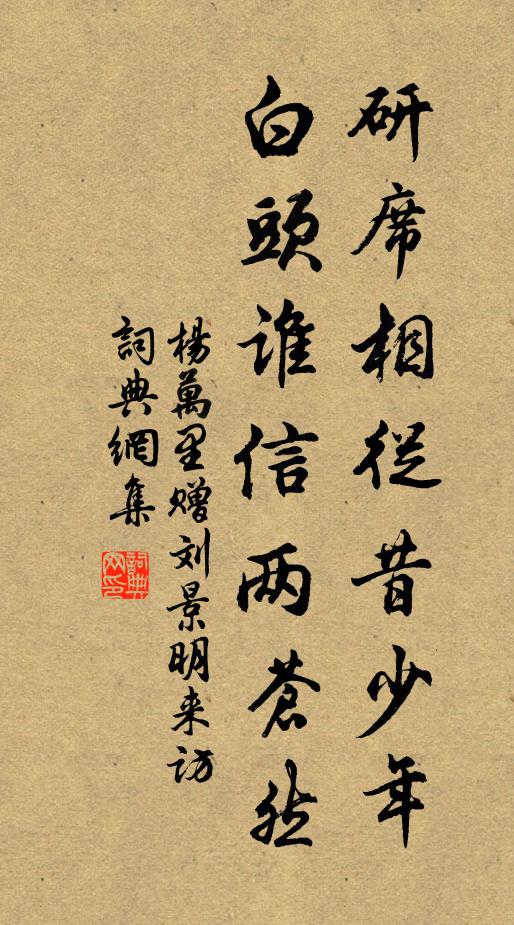 研席相從昔少年
白頭谁信两蒼然
楊萬里赠刘景明来访
詞典網集
詞典网印